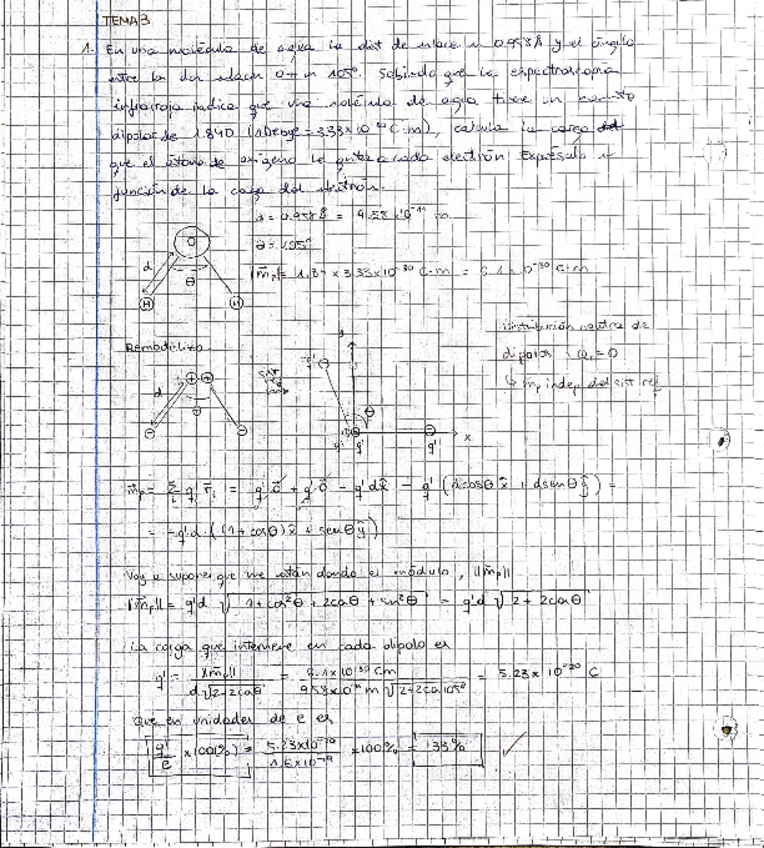 TEMA 3
1. En una molécula de agua la dist de enlace es 0.958Å y el ángulo
entre los dos enlaces O-H es 105°. Sabiendo que la espectroscopía
infrarroja indica que una molécula de agua tiene un momento
dipolar de 1.84D (1Debye = 3.33×10⁻³⁰ C·m), calcula la carga
que el átomo de oxígeno le quita a cada electrón. Exprésala en
función de la carga del electrón.
d = 0.958Å = 9.58×10⁻¹¹ m
O
θ = 105°
d
θ
|m⃗ₚ| = 1.84 × 3.33×10⁻³⁰ C·m = 6.1×10⁻³⁰ C·m
H H
Remodelizo
distribución neutra de
dipolos: Q = 0
↳ mₚ indep del sist ref
y
-q'
+ +
d
θ
- -
θ
q' q' -q' x
m⃗ₚ = Σ qᵢ r⃗ᵢ = q'·0⃗ + q'·0⃗ - q'd x̂ - q'(d cosθ x̂ + d senθ ŷ) =
= -q'd·((1+cosθ)x̂ + senθ ŷ)
Voy a suponer que me están dando el módulo, ||m⃗ₚ||
||m⃗ₚ|| = q'd √(1+cos²θ + 2cosθ + sin²θ) = q'd √(2+2cosθ)
La carga que interviene en cada dipolo es
q' = ||m⃗ₚ|| / d√(2+2cosθ) = 6.1×10⁻³⁰ Cm / 9.58×10⁻¹¹ m √(2+2cos105°) = 5.23×10⁻²⁰ C
Que en unidades de e es
q'/e ×100(%) = 5.23×10⁻²⁰ / 1.6×10⁻¹⁹ ×100% = 33% ✓